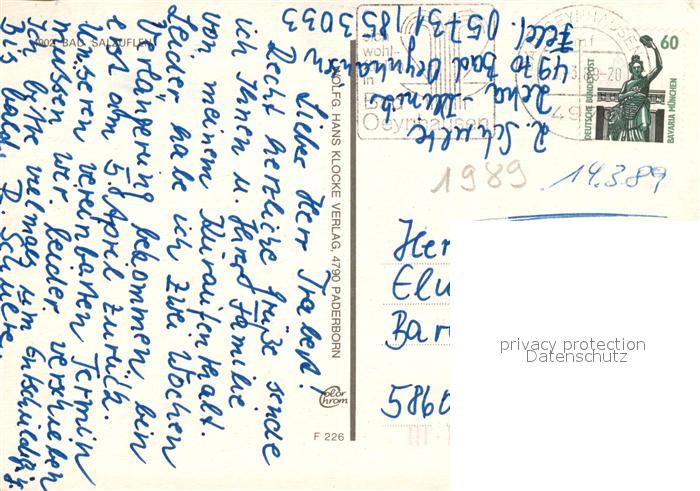 4902 BAD SALZUFLEN
Liebe Herr Trabert!
Recht herzliche Grüße sende
ich Ihnen u. Ihrer Familie
von meinem Kuraufenthalt.
Leider habe ich zwei Wochen
Verlängerung bekommen, bin
erst am 5. April zurück.
Unseren vereinbarten Termin
müssen wir leider verschieben
Ich bitte vielmals um Entschuldig.
Bis bald, R. Schulte.
R. Schulte
4970 Bad Oeynhausen
Telef. 05731/853033
wohl-
in
Bad
Oeynhausen
OEYNHAUSEN
-3.89-20
49
60
DEUTSCHE BUNDESPOST
BAVARIA MÜNCHEN
1989
14.3.89
WOLFG. HANS KLOCKE VERLAG, 4790 PADERBORN
Color
Chrom
F 226
Her
Elu
Bar
5860
privacy protection
Datenschutz